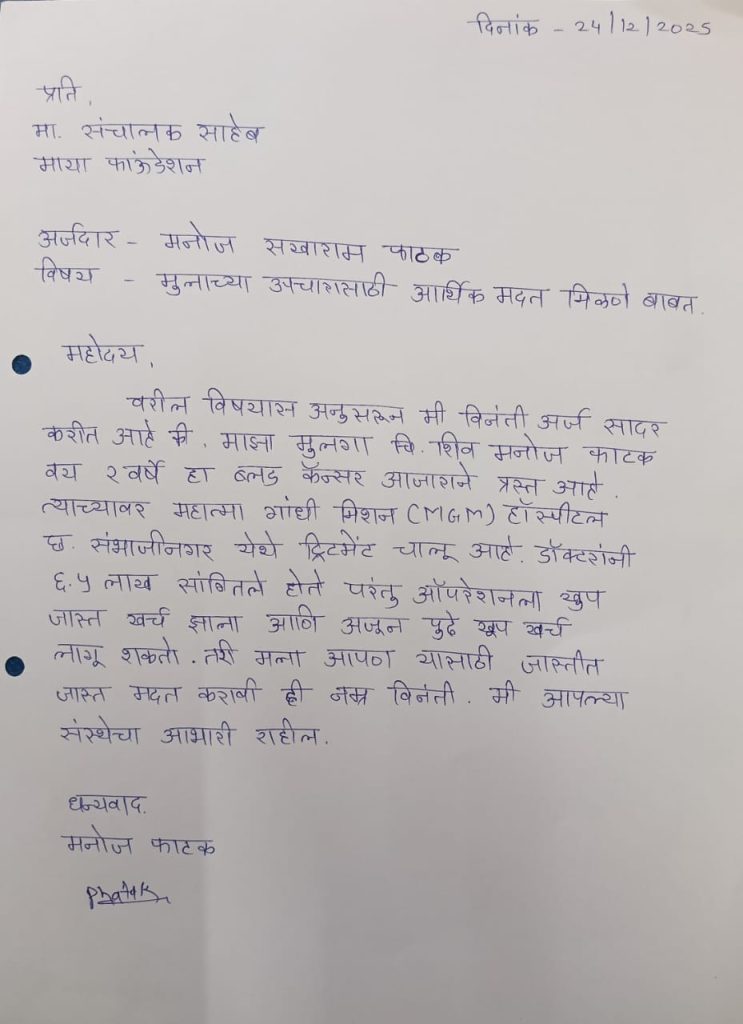 दिनांक - 24/12/2025
प्रति,
मा. संचालक साहेब
माया फाऊंडेशन
अर्जदार - मनोज सखाराम फाटक
विषय - मुलाच्या उपचारासाठी आर्थिक मदत मिळणे बाबत.
महोदय,
वरील विषयास अनुसरून मी विनंती अर्ज सादर
करीत आहे की, माझा मुलगा चि. शिव मनोज फाटक
वय २ वर्षे हा ब्लड कॅन्सर आजाराने त्रस्त आहे.
त्याच्यावर महात्मा गांधी मिशन (MGM) हॉस्पीटल
छ. संभाजीनगर येथे ट्रिटमेंट चालू आहे. डॉक्टरांनी
६.५ लाख सांगितले होते परंतु ऑपरेशनला खुप
जास्त खर्च झाला आणि अजून पुढे खूप खर्च
लागू शकतो. तरी मला आपण यासाठी जास्तीत
जास्त मदत करावी ही नम्र विनंती. मी आपल्या
संस्थेचा आभारी राहील.
धन्यवाद.
मनोज फाटक
Phatak